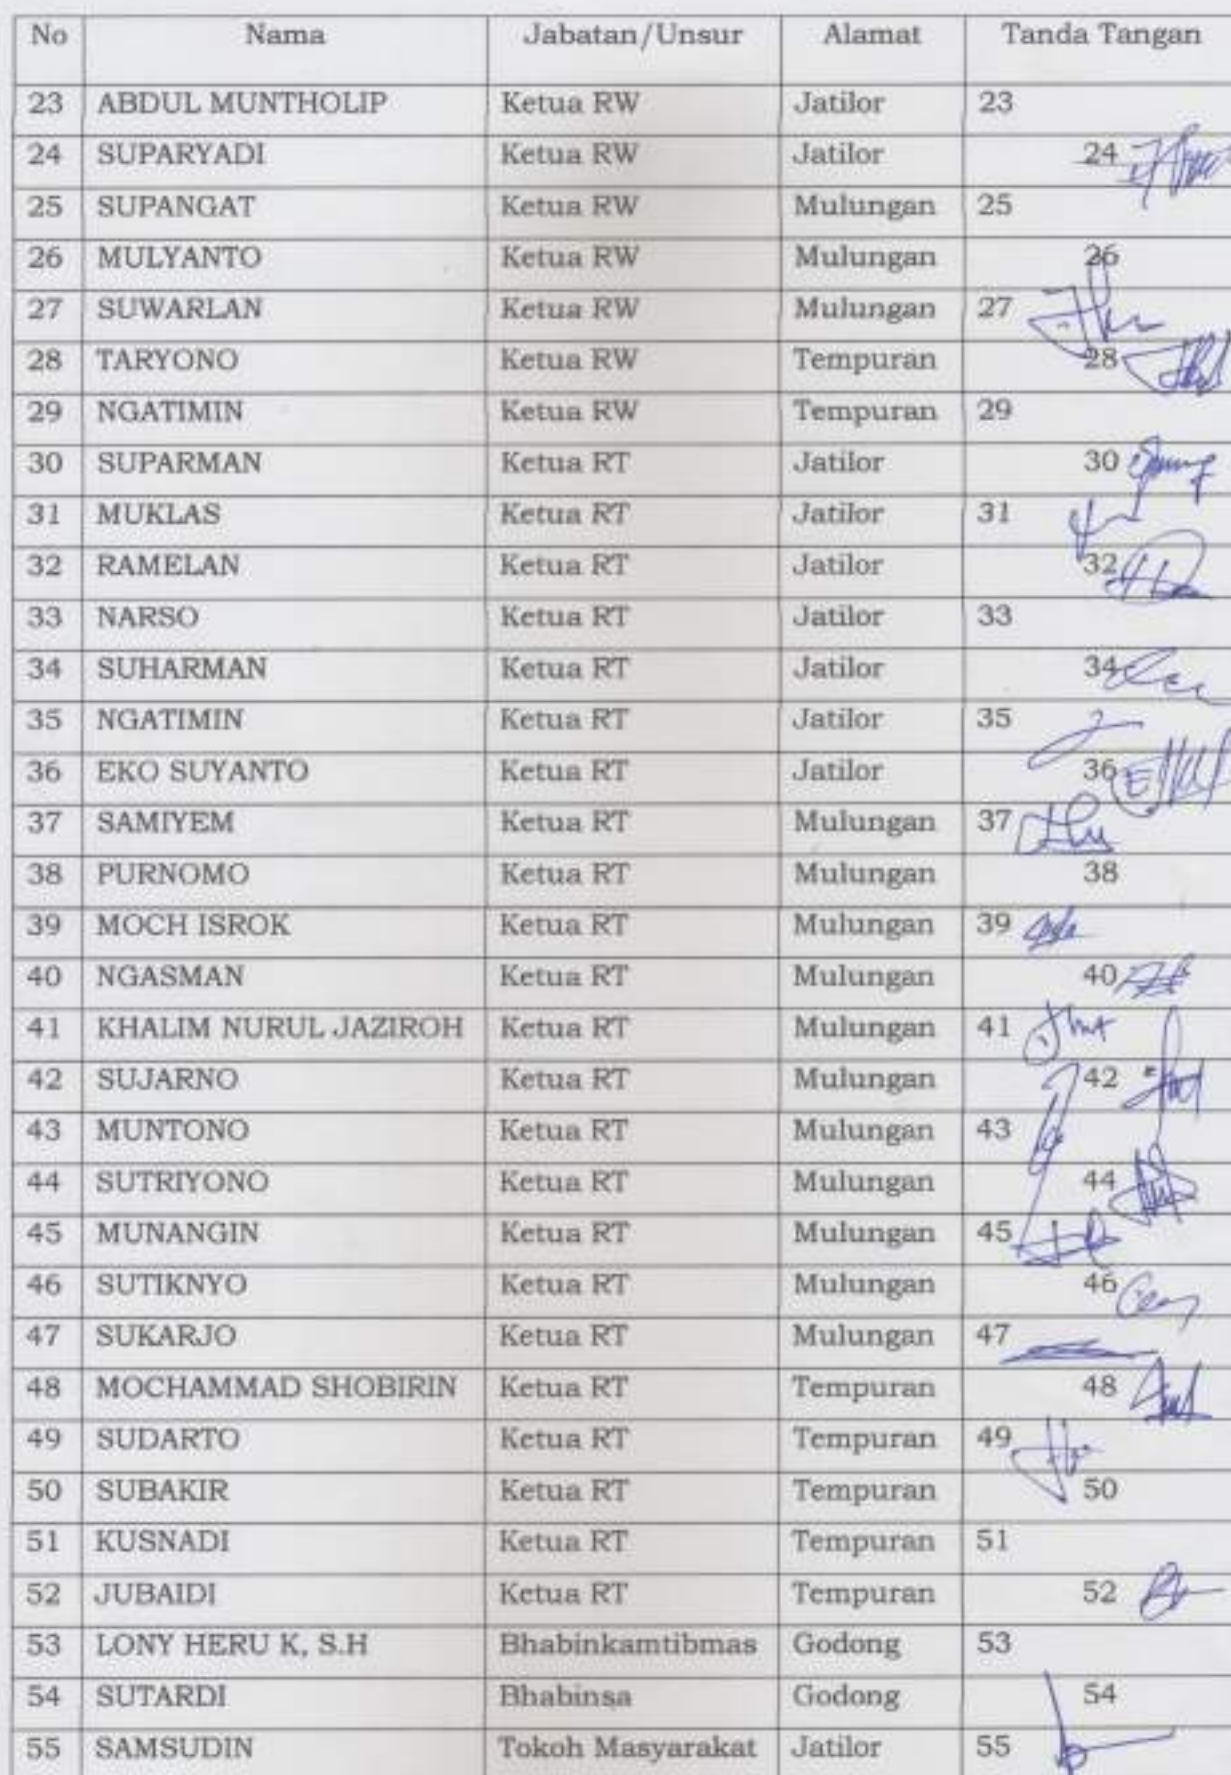 No Nama Jabatan/Unsur Alamat Tanda Tangan
23 ABDUL MUNTHOLIP Ketua RW Jatilor 23
24 SUPARYADI Ketua RW Jatilor 24
25 SUPANGAT Ketua RW Mulungan 25
26 MULYANTO Ketua RW Mulungan 26
27 SUWARLAN Ketua RW Mulungan 27
28 TARYONO Ketua RW Tempuran 28
29 NGATIMIN Ketua RW Tempuran 29
30 SUPARMAN Ketua RT Jatilor 30
31 MUKLAS Ketua RT Jatilor 31
32 RAMELAN Ketua RT Jatilor 32
33 NARSO Ketua RT Jatilor 33
34 SUHARMAN Ketua RT Jatilor 34
35 NGATIMIN Ketua RT Jatilor 35
36 EKO SUYANTO Ketua RT Jatilor 36
37 SAMIYEM Ketua RT Mulungan 37
38 PURNOMO Ketua RT Mulungan 38
39 MOCH ISROK Ketua RT Mulungan 39
40 NGASMAN Ketua RT Mulungan 40
41 KHALIM NURUL JAZIROH Ketua RT Mulungan 41
42 SUJARNO Ketua RT Mulungan 42
43 MUNTONO Ketua RT Mulungan 43
44 SUTRIYONO Ketua RT Mulungan 44
45 MUNANGIN Ketua RT Mulungan 45
46 SUTIKNYO Ketua RT Mulungan 46
47 SUKARJO Ketua RT Mulungan 47
48 MOCHAMMAD SHOBIRIN Ketua RT Tempuran 48
49 SUDARTO Ketua RT Tempuran 49
50 SUBAKIR Ketua RT Tempuran 50
51 KUSNADI Ketua RT Tempuran 51
52 JUBAIDI Ketua RT Tempuran 52
53 LONY HERU K, S.H Bhabinkamtibmas Godong 53
54 SUTARDI Bhabinsa Godong 54
55 SAMSUDIN Tokoh Masyarakat Jatilor 55